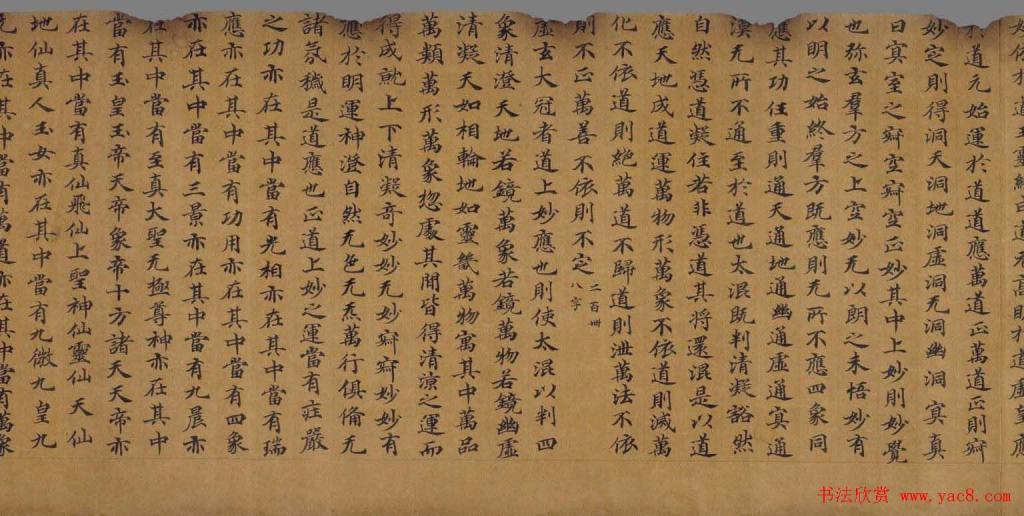 於道元始運於道道應萬道正萬道正則寂
妙定則得洞天洞地洞虛洞无洞幽洞冥真
曰寘室之寂空寂空正妙其中上妙則妙覺
也弥玄羣方之上空妙无以朗之未悟妙有
以明之始終羣方既應則无所不應四象同
應其功任重則通天通地通幽通虛通寘通
漠无所不通至於道也太混既判清凝豁然
自然憑道凝住若非憑道其將還混是以道
應天地成道運萬物形萬象不依道則滅萬
化不依道則絕萬道不歸道則泄萬法不依
則不正萬善不依則不定二百卌八字
虛玄大冠者道上妙應也則使太混以判四
象清澄天地若鏡萬象若鏡萬物若鏡幽虛
清凝天如相輪地如靈幾萬物寓其中萬品
萬類萬形萬象惣處其間皆得清涼之運而
得成就上下清凝奇妙无妙寂寂妙妙有
應於明運神澄自然无色无炁萬行俱俻无
諸氛穢是道應也正道上妙之運當有莊嚴
之功亦在其中當有光相亦在其中當有瑞
應亦在其中當有功用亦在其中當有四象
亦在其中當有三景亦在其中當有九晨亦
在其中當有至真大聖无極尊神亦在其中
當有玉皇玉帝天帝象帝十方諸天天帝亦
在其中當有真仙飛仙上聖神仙靈仙天仙
地仙真人玉女亦在其中當有九微九皇九
亦在其中當有萬道亦在其中當有萬象
书法欣赏 www.yac8.com